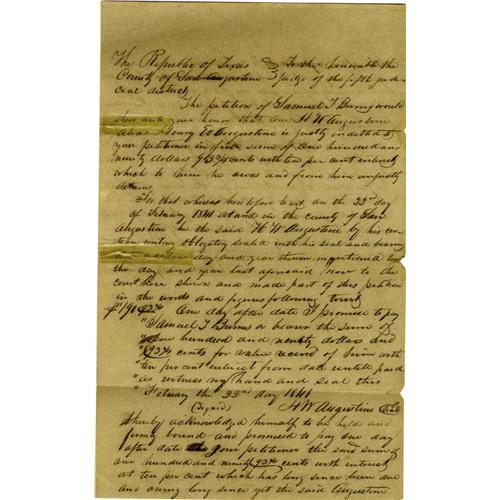 The Republic of Texas } To the honorable the
County of San Augustine } judge of the fifth judi-
cial district
The petition of Samuel T Burns would
shew unto your honor that one H W Augustine
alias Henry W Augustine is justly indebted to
your petitioner in the sum of one hundred and
ninety dollars & 93¾ cents with ten per cent interest
which to him he owes and from him unjustly
detains
For that whereas heretofore to wit on the 22nd day
of Febuary 1841 at and in the county of San
Augustine he the said H W Augustine by his cer-
tain writing obligatory sealed with his seal and bearing
date the day and year therein mentioned to wit
the day and year last aforesaid now to the
court here shown and made part of this petition
in the words and figures following to wit
$190 93¾ One day after date I promise to pay
"Samuel T Burns or bearer the sum of
"one hundred and ninety dollars and
"93¾ cents for value received of him with
"ten per cent interest from date until paid
"as witness my hand and seal this
"Febuary the 22nd day 1841
(Signed) H W Augustine Seal
whereby acknowledged himself to be held and
firmly bound and promised to pay one day
after date to your petitioner the said sum of
one hundred and ninety 93¾ cents with interest
at ten per cent which has long since been due
and owing long since yet the said Augustine